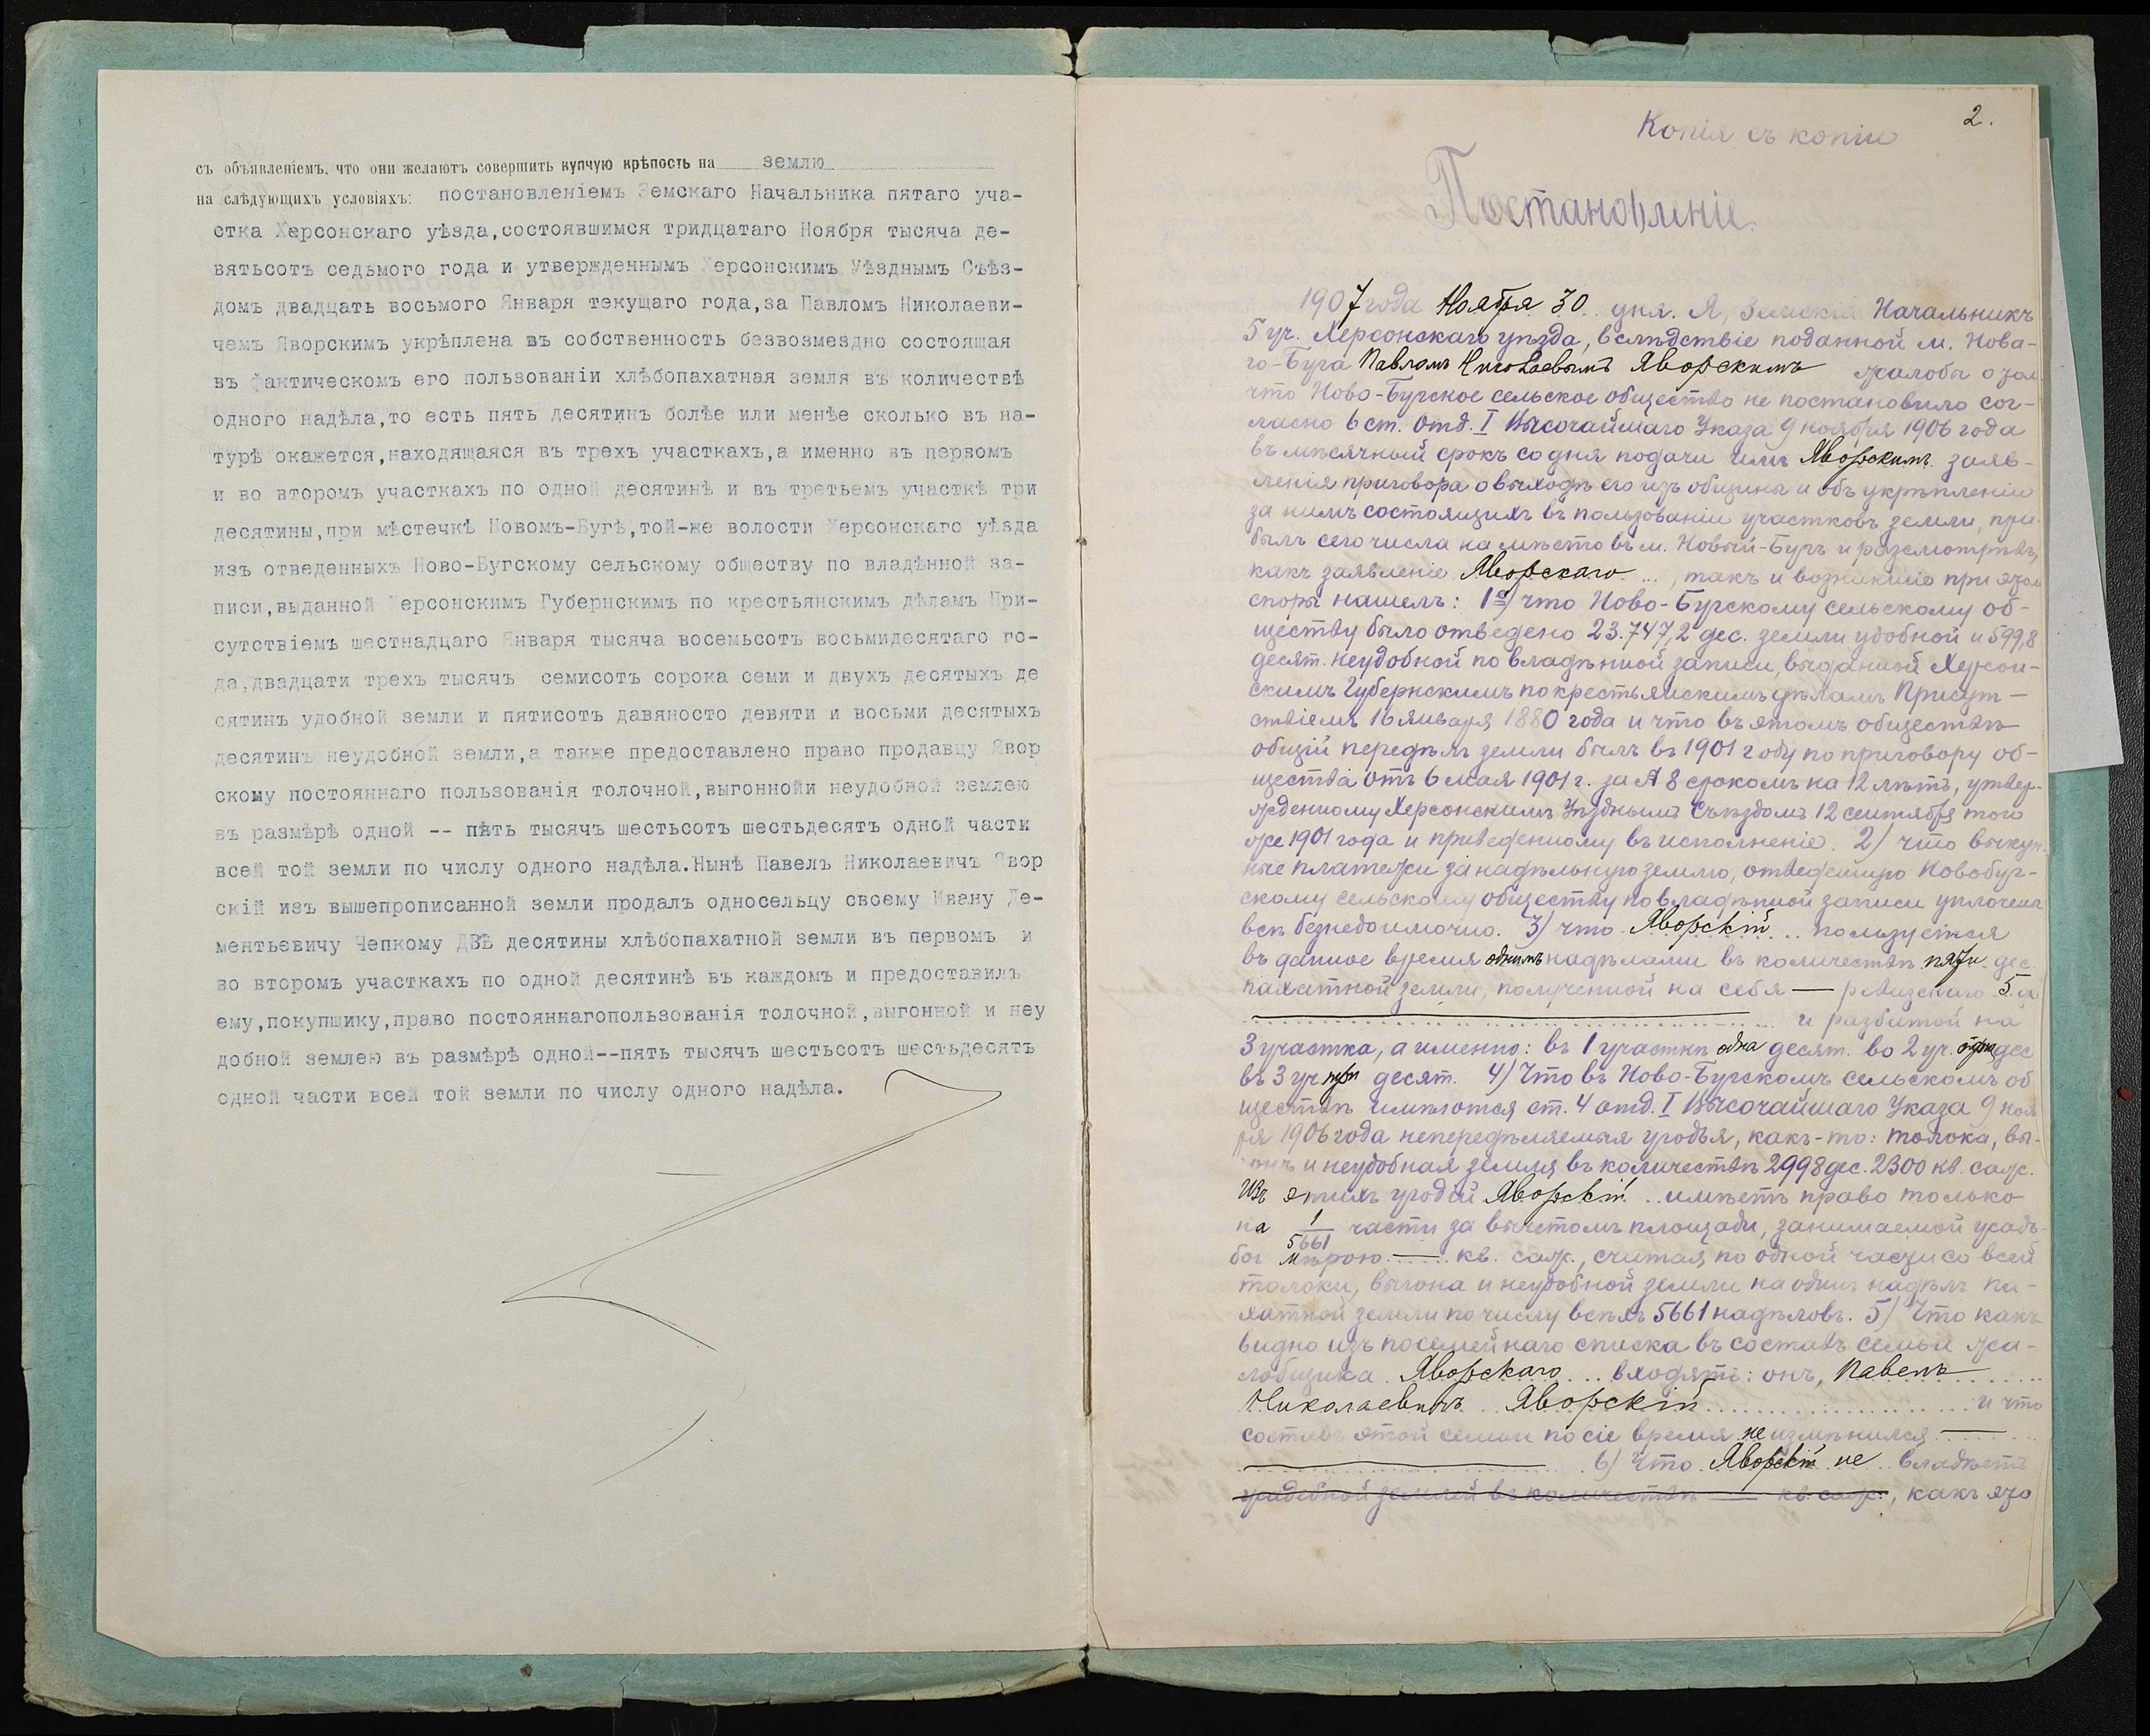 съ объявленіемъ, что они желаютъ совершить купчую крѣпость на землю
на слѣдующихъ условіяхъ: постановленіемъ Земскаго Начальника пятаго уча-
стка Херсонскаго уѣзда,состоявшимся тридцатаго Ноября тысяча де-
вятьсотъ седьмого года и утвержденнымъ Херсонскимъ Уѣзднымъ Съѣз-
домъ двадцать восьмого Января текущаго года,за Павломъ Николаеви-
чемъ Яворскимъ укрѣплена въ собственность безвозмездно состоящая
въ фактическомъ его пользованіи хлѣбопахатная земля въ количествѣ
одного надѣла,то есть пять десятинъ болѣе или менѣе сколько въ на-
турѣ окажется,находящаяся въ трехъ участкахъ,а именно въ первомъ
и во второмъ участкахъ по одной десятинѣ и въ третьемъ участкѣ три
десятины,при мѣстечкѣ Новомъ-Бугѣ,той-же волости Херсонскаго уѣзда
изъ отведенныхъ Ново-Бугскому сельскому обществу по владѣнной за-
писи,выданной Херсонскимъ Губернскимъ по крестьянскимъ дѣламъ При-
сутствіемъ шестнадцаго Января тысяча восемьсотъ восьмидесятаго го-
да,двадцати трехъ тысячъ семисотъ сорока семи и двухъ десятыхъ де
сятинъ удобной земли и пятисотъ давяносто девяти и восьми десятыхъ
десятинъ неудобной земли,а также предоставлено право продавцу Явор
скому постояннаго пользованія толочной,выгоннойи неудобной землею
въ размѣрѣ одной -- пять тысячъ шестьсотъ шестьдесятъ одной части
всей той земли по числу одного надѣла.Нынѣ Павелъ Николаевичъ Явор
скій изъ вышепрописанной земли продалъ односельцу своему Ивану Де-
ментьевичу Чепкому ДВѢ десятины хлѣбопахатной земли въ первомъ и
во второмъ участкахъ по одной десятинѣ въ каждомъ и предоставилъ
ему,покупщику,право постояннагопользованія толочной,выгонной и неу
добной землею въ размѣрѣ одной--пять тысячъ шестьсотъ шестьдесятъ
одной части всей той земли по числу одного надѣла.
2.
Копія съ копіи
Постановленіе.
1907 года Ноября 30 дня. Я, Земскій Начальникъ
5 уч. Херсонскаго уѣзда, вслѣдствіе поданной м. Нова-
го-Буга Павломъ Николаевымъ Яворскимъ жалобы о
что Ново-Бугское сельское общество не постановило сог-
ласно 6 ст. отд. I Высочайшаго Указа 9 ноября 1906 года
въ мѣсячный срокъ со дня подачи имъ Яворскимъ заяв-
ленія приговора о выходѣ его изъ общины и объ укрѣпленіи
за нимъ состоящихъ въ пользованіи участковъ земли, при-
былъ сего числа на мѣсто въ м. Новый-Бугъ и разсмотрѣвъ,
какъ заявленіе Яворскаго ..., такъ и возникшіе при этом
споры нашелъ: 1е/ что Ново-Бугскому сельскому об-
ществу было отведено 23.747,2 дес. земли удобной и 599,8
десят. неудобной по владѣнной записи, выданной Херсон-
скимъ Губернскимъ по крестьянскимъ дѣламъ Присут-
ствіемъ 16 января 1880 года и что въ этомъ обществѣ
общій передѣлъ земли былъ въ 1901 году по приговору об-
щества отъ 6 мая 1901 г. за № 8 срокомъ на 12 лѣтъ, утвер-
жденному Херсонскимъ Уѣзднымъ Съѣздомъ 12 сентября того
же 1901 года и приведенному въ исполненіе. 2/ что выкуп-
ные платежи за надѣльную землю, отведенную Новобуг-
скому сельскому обществу по владѣнной записи уплочены
всѣ безнедоимочно. 3/ что Яворскій ... пользуется
въ данное время однимъ надѣлами въ количествѣ пяти дес.
пахатной земли, полученной на себя — ревизскаго 5
и разбитой на
3 участка, а именно: въ 1 участкѣ одна десят. во 2 уч. одна дес
въ 3 уч три десят. 4/ Что въ Ново-Бугскомъ сельскомъ об
ществѣ имѣются ст. 4 отд. I Высочайшаго Указа 9 нояб
ря 1906 года непередѣляемыя угодья, какъ-то: толока, вы-
гонъ и неудобная земля въ количествѣ 2998 дес. 2300 кв. саж.
Изъ этихъ угодій Яворскій .. имѣетъ право только
на 1/5661 части за вычетомъ площади, занимаемой усадь-
бой мѣрою — кв. саж., считая по одной части со всей
толоки, выгона и неудобной земли на одинъ надѣлъ па-
хатной земли по числу всѣхъ 5661 надѣловъ. 5/ Что какъ
видно изъ посемейнаго списка въ составъ семьи жа-
лобщика Яворскаго ... входятъ: онъ, Павелъ
Николаевичъ Яворскій ... и что
составъ этой семьи по сіе время не измѣнился —
6/ Что Яворскій не владѣетъ
усадебной землей въ количествѣ — кв. саж., какъ это